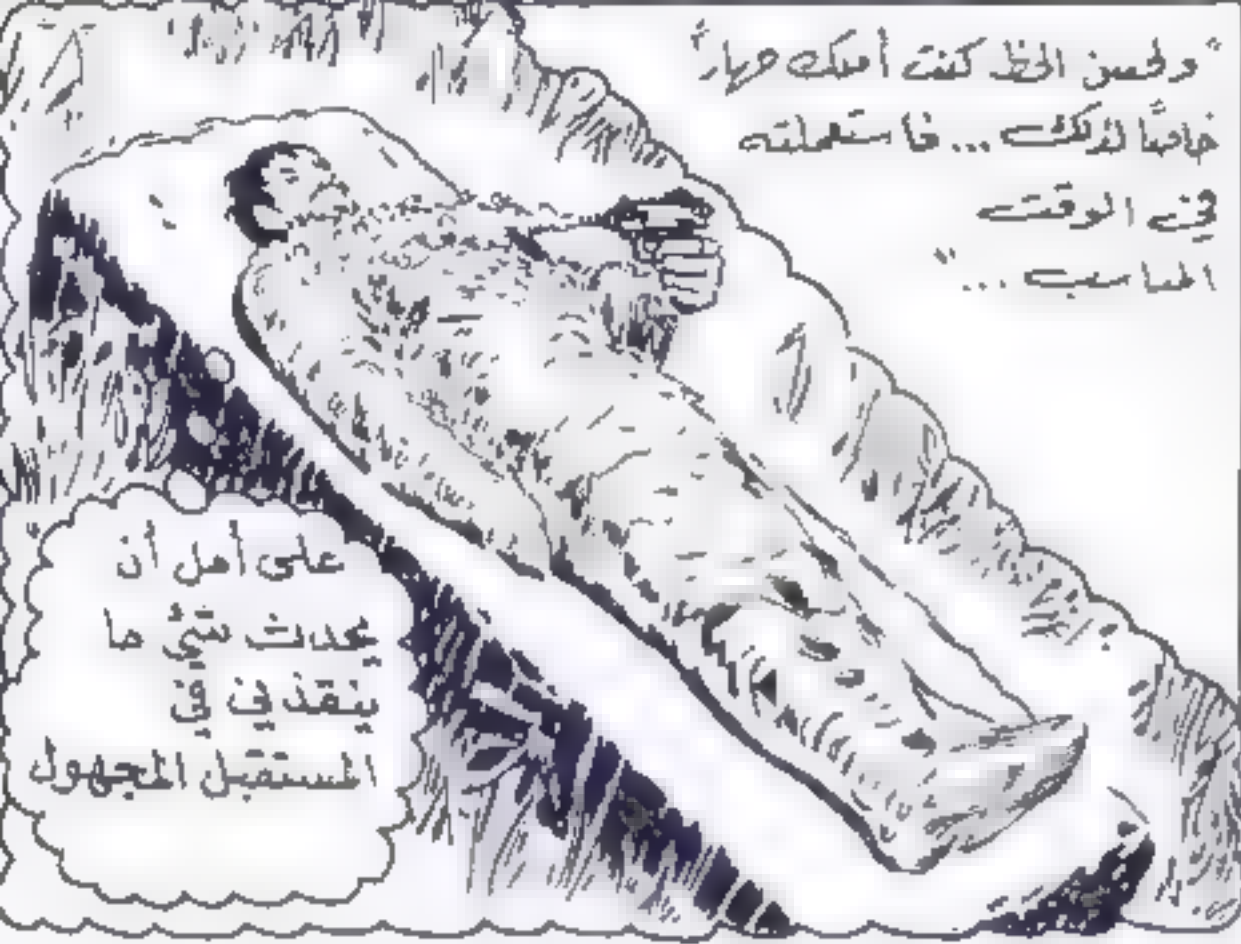 "ولحسن الحظ كنت أملك جهازاً
خاصًا لذلك... فاستعملته
في الوقت
المناسب..."
على أمل أن
يحدث شئ ما
ينقذني في
المستقبل المجهول